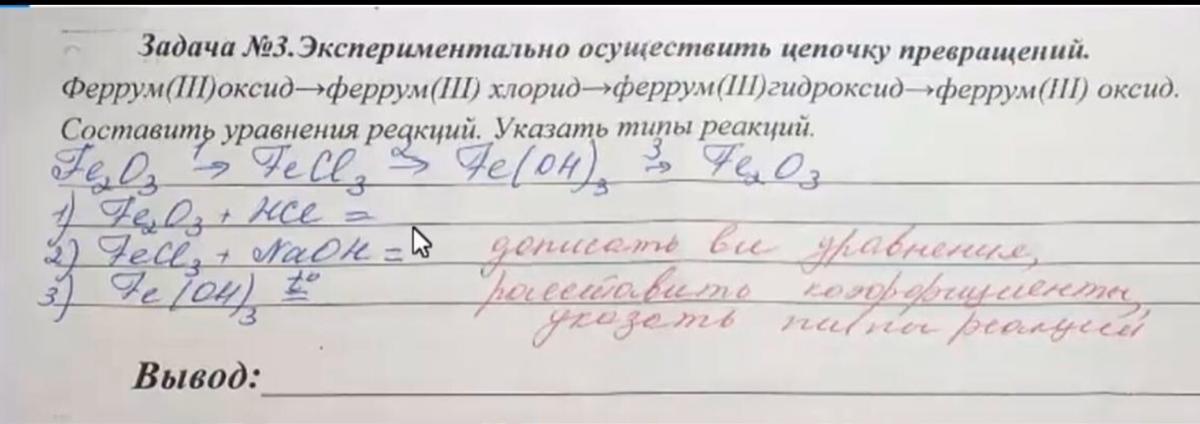 Задача №3.Экспериментально осуществить цепочку превращений.
Феррум(III)оксид→феррум(III) хлорид→феррум(III)гидроксид→феррум(III) оксид.
Составить уравнения реакций. Указать типы реакций.
Fe₂O₃ →¹ FeCl₃ →² Fe(OH)₃ →³ Fe₂O₃
1) Fe₂O₃ + HCl =
2) FeCl₃ + NaOH = дописать все уравнения,
3) Fe(OH)₃ t°= расставить коэффициенты,
указать типы реакций
Вывод: